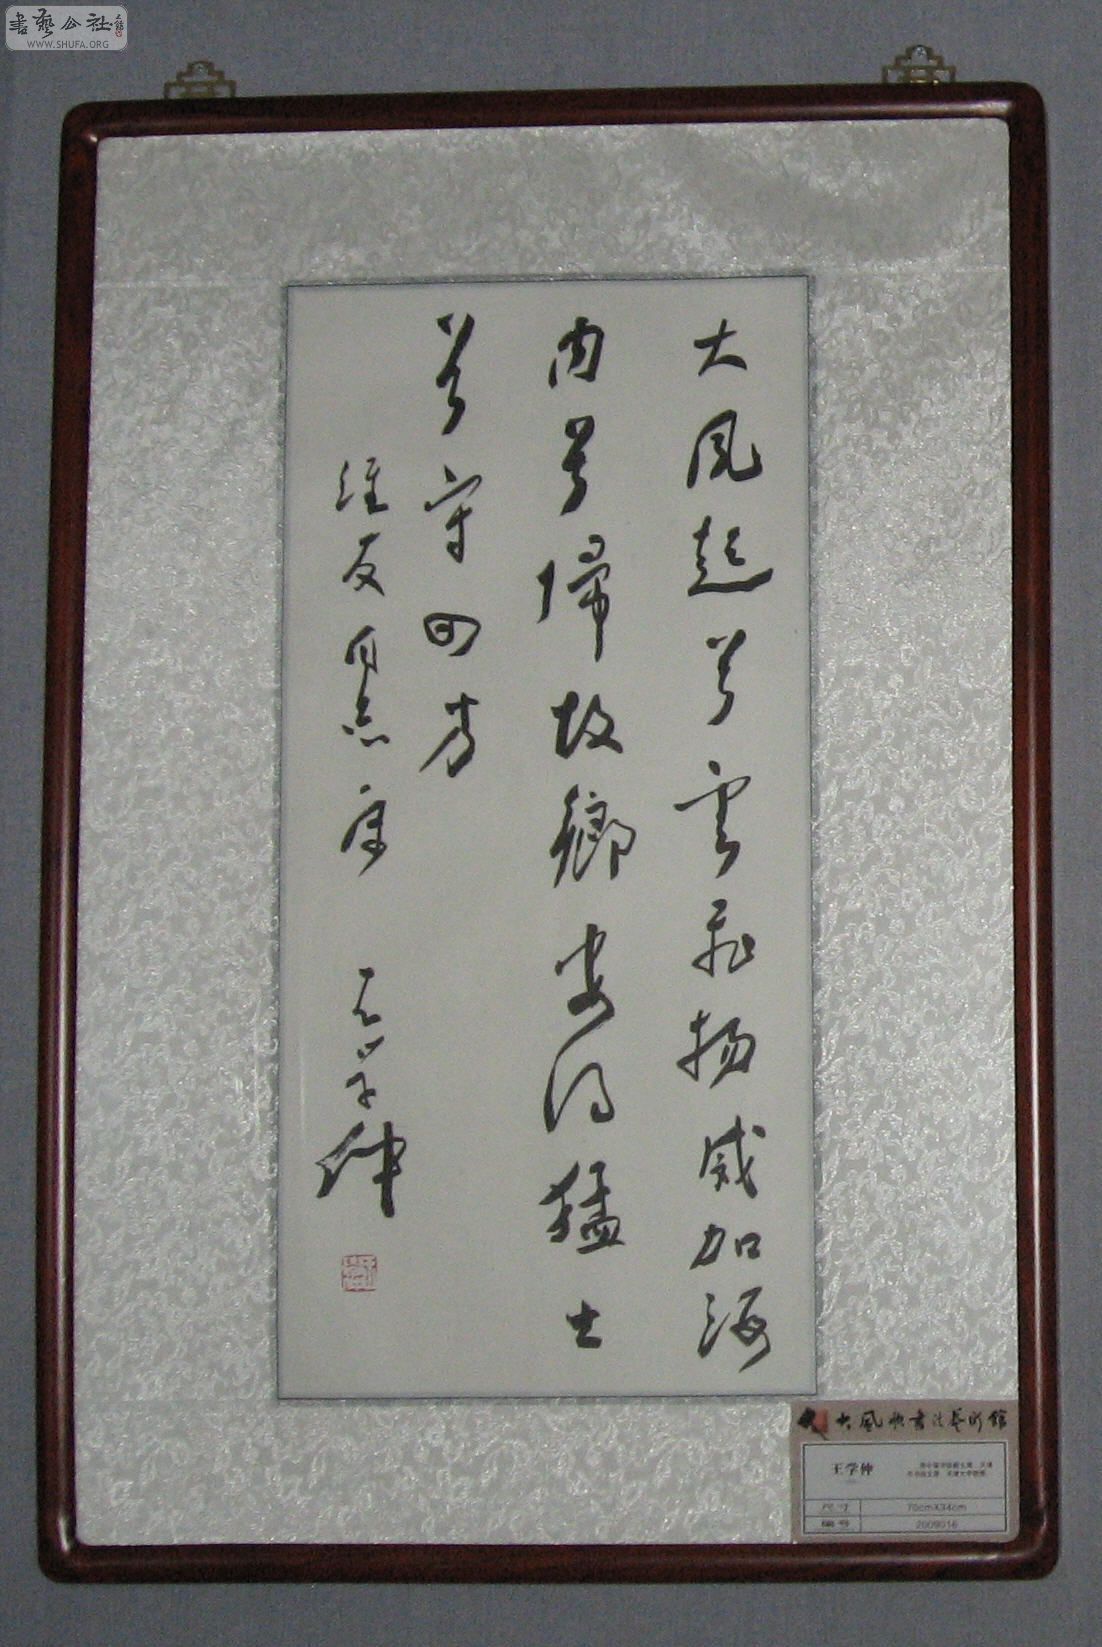 書藝公社
WWW.SHUFA.ORG
大風起兮雲飛揚威加海
内兮歸故鄉安得猛士
兮守四方
王学仲
大風歌書法藝術館
王学仲
尺寸 70cmX34cm
编号 2009016